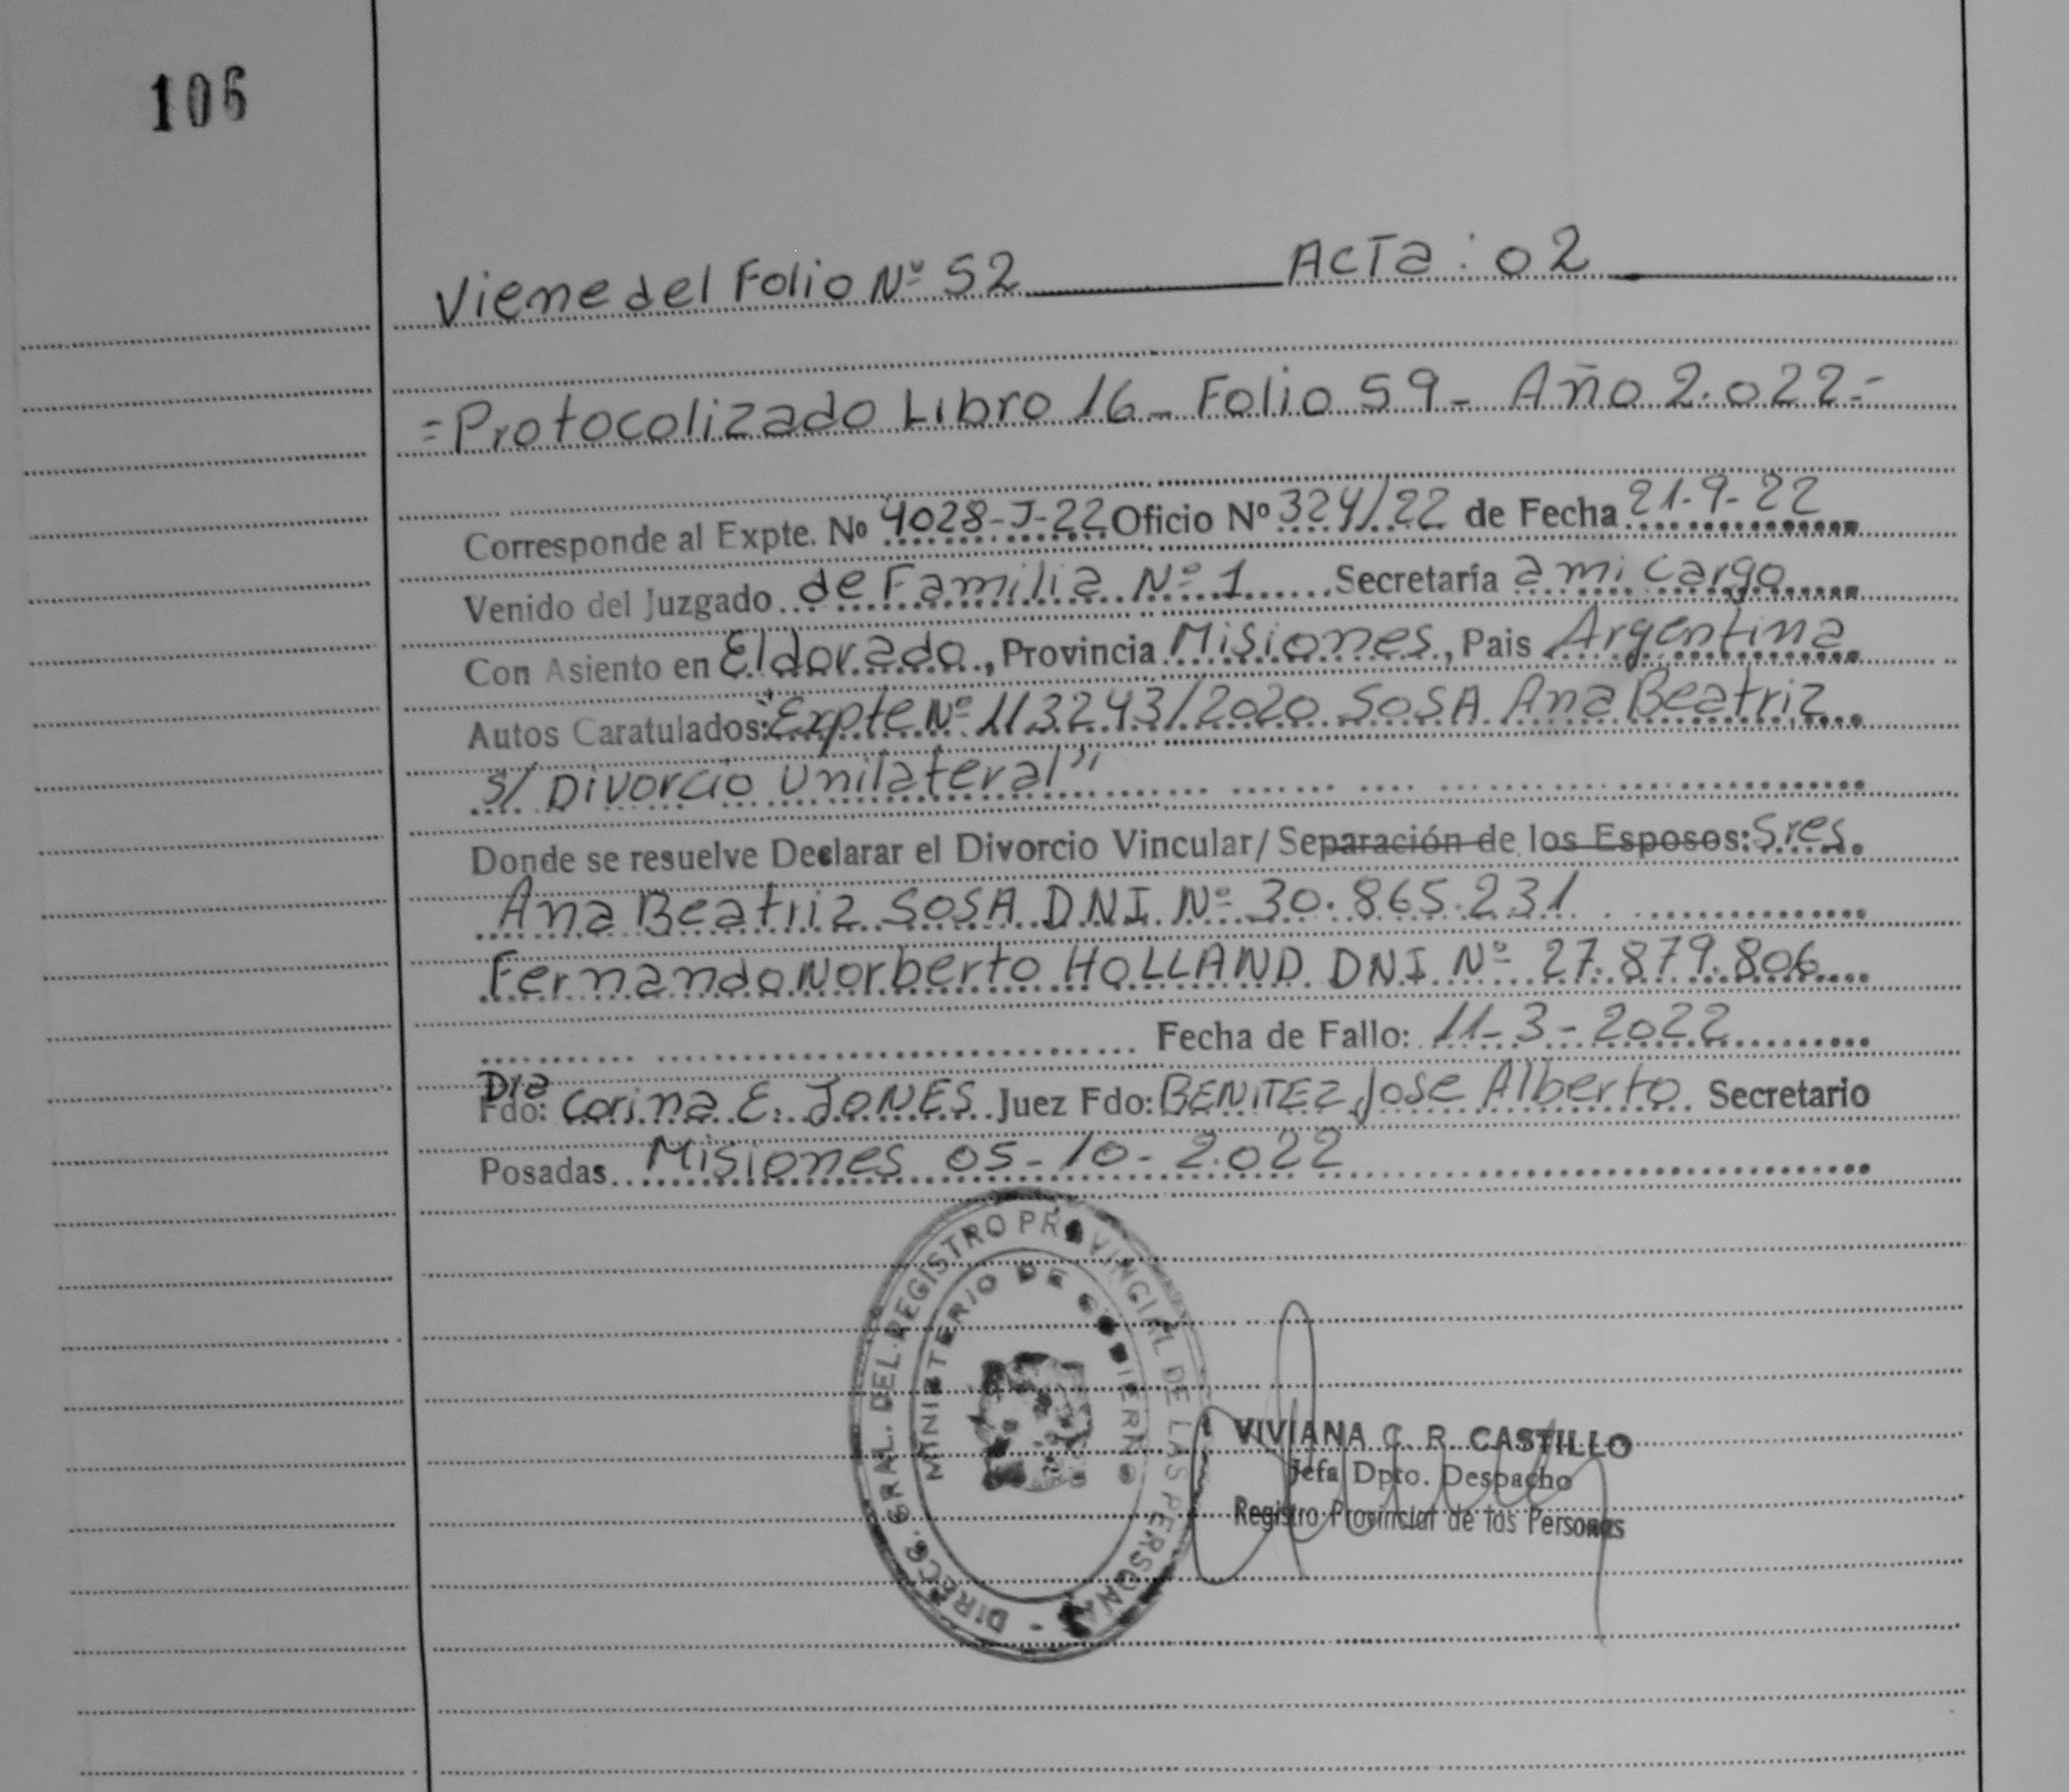 106
Viene del Folio Nº 52 Acta: 02
=Protocolizado Libro 16- Folio 59- Año 2.022=
Corresponde al Expte. Nº 4028-J-22 Oficio Nº 324/22 de Fecha 21-9-22
Venido del Juzgado de Familia Nº 1 Secretaría a mi cargo
Con Asiento en Eldorado, Provincia Misiones, Pais Argentina
Autos Caratulados: "Expte Nº 113243/2020 SOSA Ana Beatriz
s/ Divorcio Unilateral"
Donde se resuelve Declarar el Divorcio Vincular/ Separación de los Esposos: Sres.
Ana Beatriz SOSA DNI Nº 30.865.231
Fernando Norberto HOLLAND DNI Nº 27.879.806
Fecha de Fallo: 11-3-2022
Dra
Fdo: Corina E. JONES Juez Fdo: BENITEZ Jose Alberto Secretario
Posadas Misiones 05-10-2.022
DIRECC. GRAL. DEL REGISTRO PROVINCIAL DE LAS PERSONAS -
MINISTERIO DE GOBIERNO
VIVIANA C. R. CASTILLO
Jefa Dpto. Despacho
Registro Provincial de las Personas